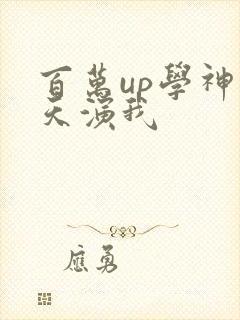 百萬up學神
天演我
應勇